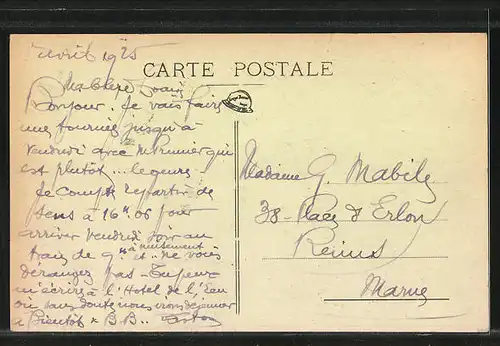 avril 1925
CARTE POSTALE
Ma chère
Bonjour. Je vais faire
une tournée jusqu'à
Vendredi avec M. Prunier qui
est plutôt...
Je compte repartir de
Sens à 16h 06 pour
arriver Vendredi soir au
train de 9h et - ne vous
dérangez pas - Tu peux
m'écrire à l'Hotel de l'Ecu
où sans doute nous irons déjeuner
a Bientôt x B.B..
Madame G. Mabile
38 - Place d'Erlon
Reims
Marne